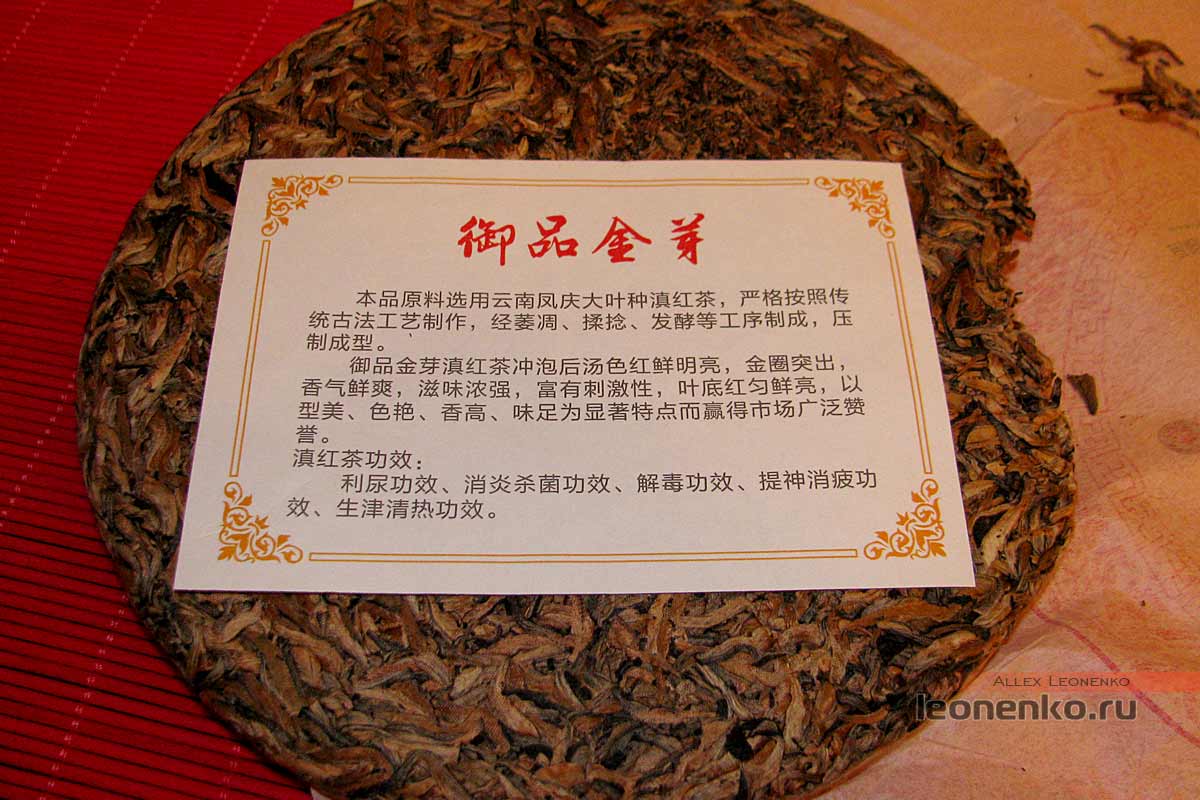 御品金芽
本品原料选用云南凤庆大叶种滇红茶，严格按照传
统古法工艺制作，经萎凋、揉捻、发酵等工序制成，压
制成型。
御品金芽滇红茶冲泡后汤色红鲜明亮，金圈突出，
香气鲜爽，滋味浓强，富有刺激性，叶底红匀鲜亮，以
型美、色艳、香高、味足为显著特点而赢得市场广泛赞
誉。
滇红茶功效：
利尿功效、消炎杀菌功效、解毒功效、提神消疲功
效、生津清热功效。
Allex Leonenko
leonenko.ru